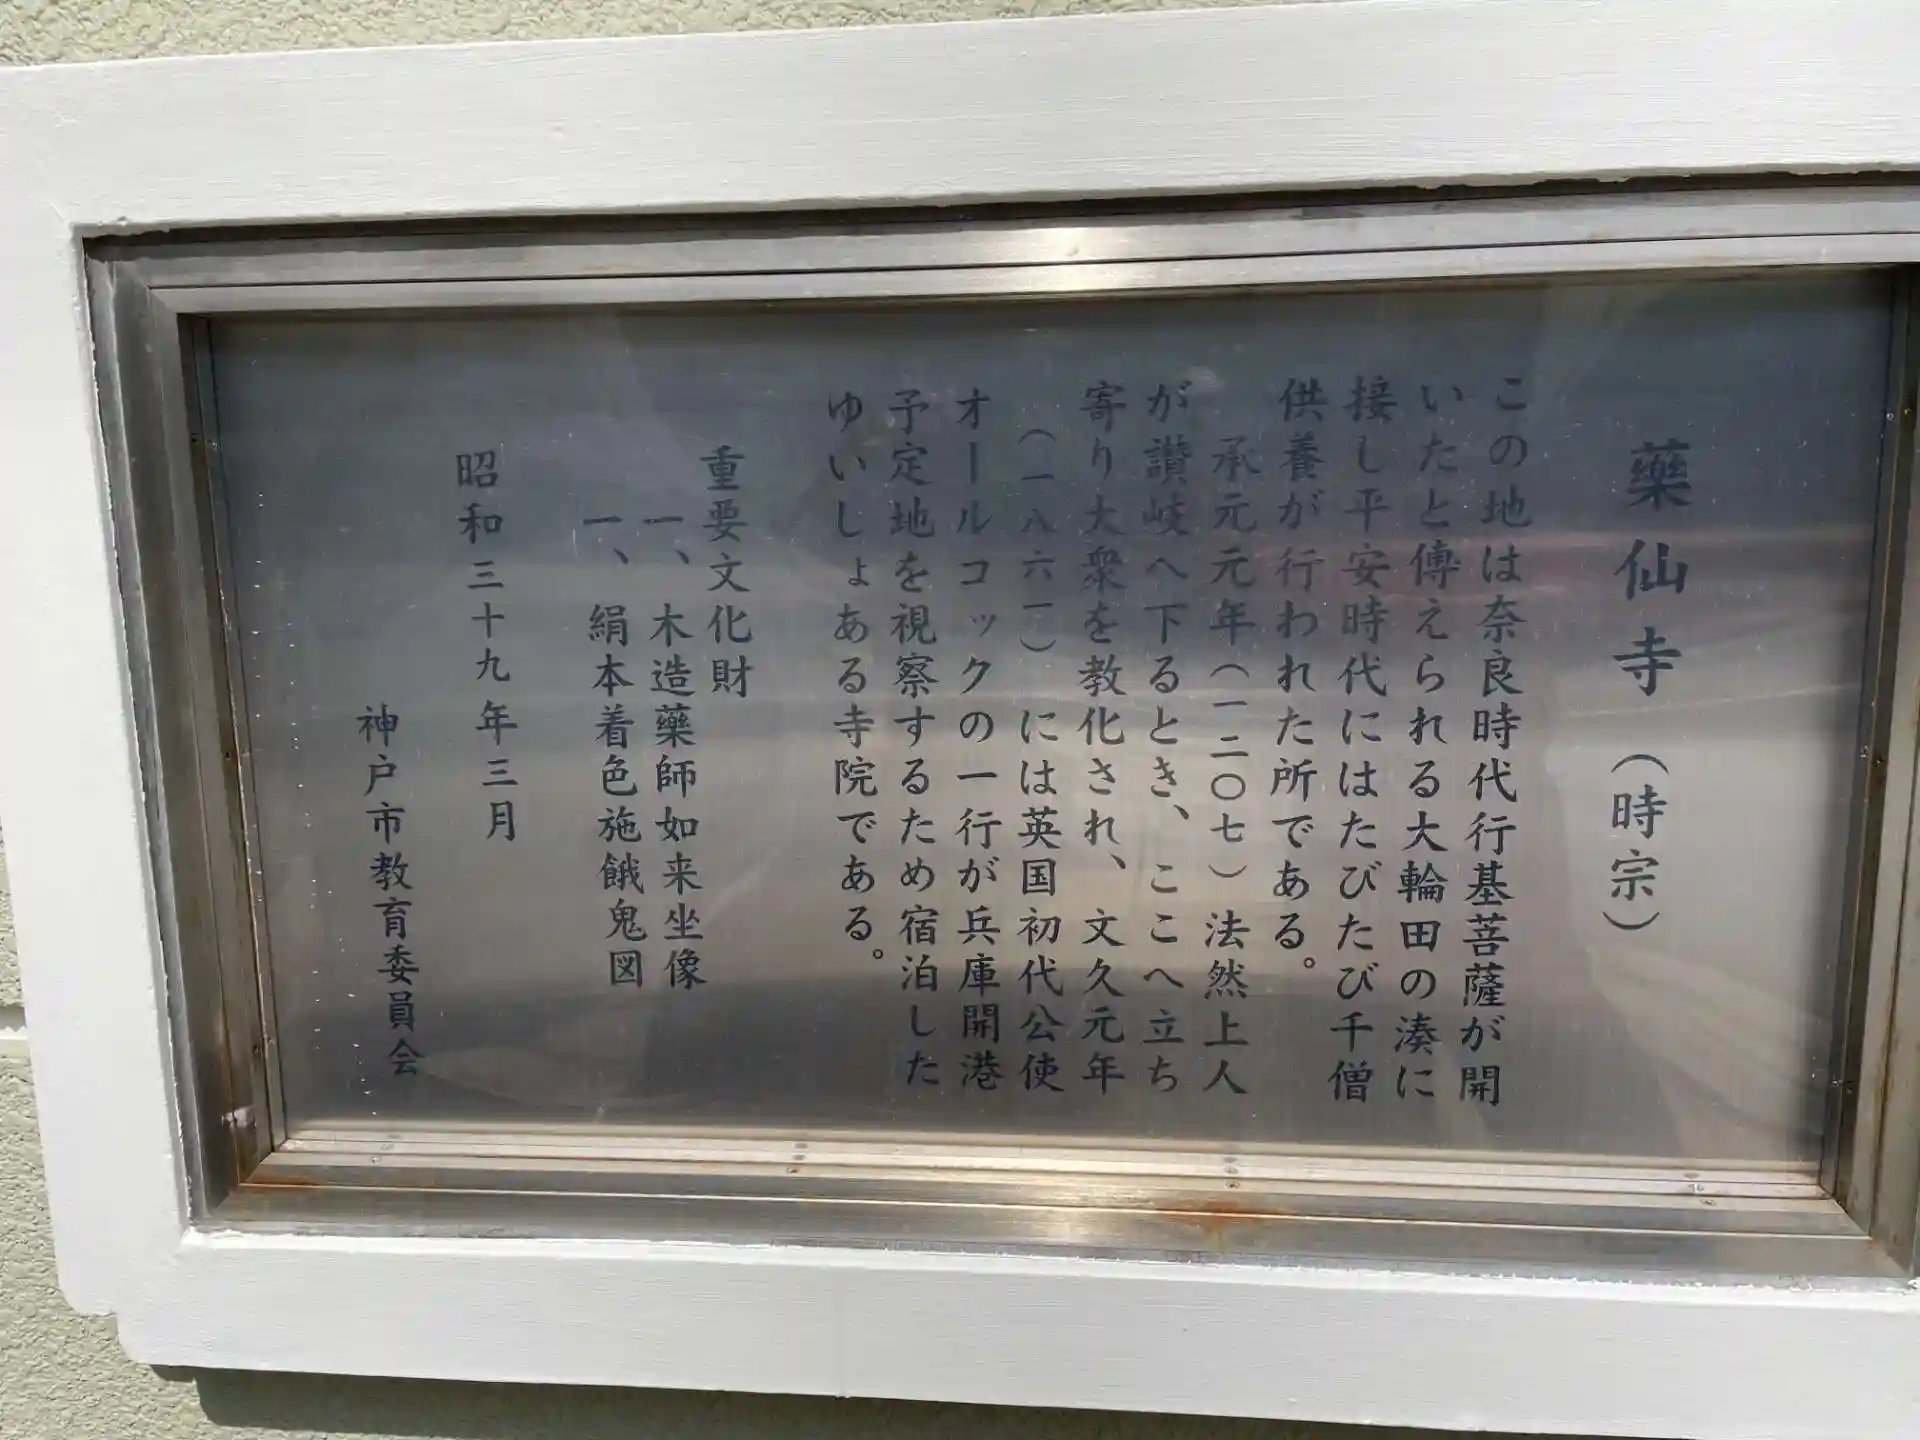 藥仙寺（時宗）
この地は奈良時代行基菩薩が開
いたと傳えられる大輪田の湊に
接し平安時代にはたびたび千僧
供養が行われた所である。
承元元年（一二〇七）法然上人
が讃岐へ下るとき、ここへ立ち
寄り大衆を教化され、文久元年
（一八六一）には英国初代公使
オールコックの一行が兵庫開港
予定地を視察するため宿泊した
ゆいしょある寺院である。
重要文化財
一、木造藥師如来坐像
一、絹本着色施餓鬼図
昭和三十九年三月
神戸市教育委員会